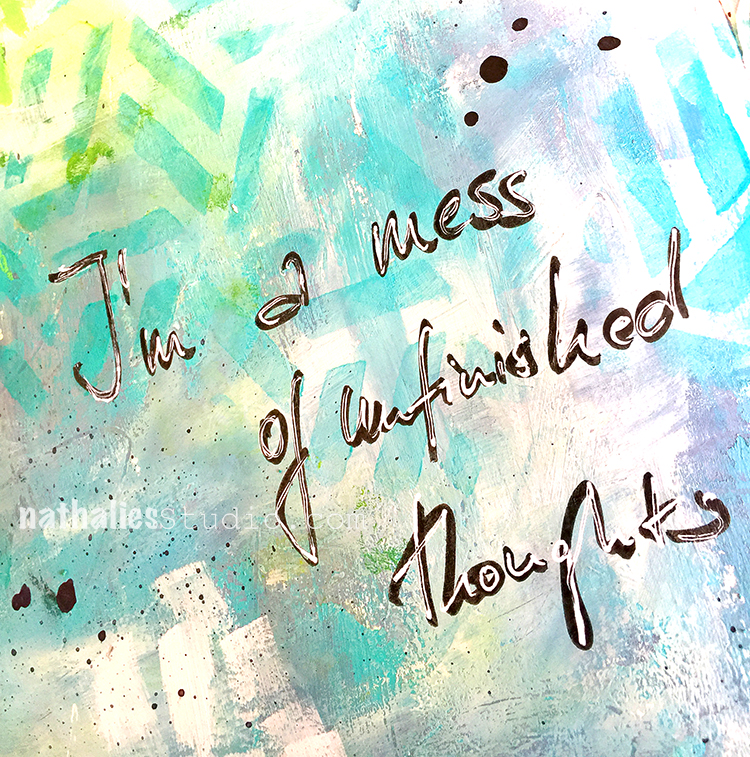 I'm a mess
of unfinished
thoughts
nathaliesstudio.com